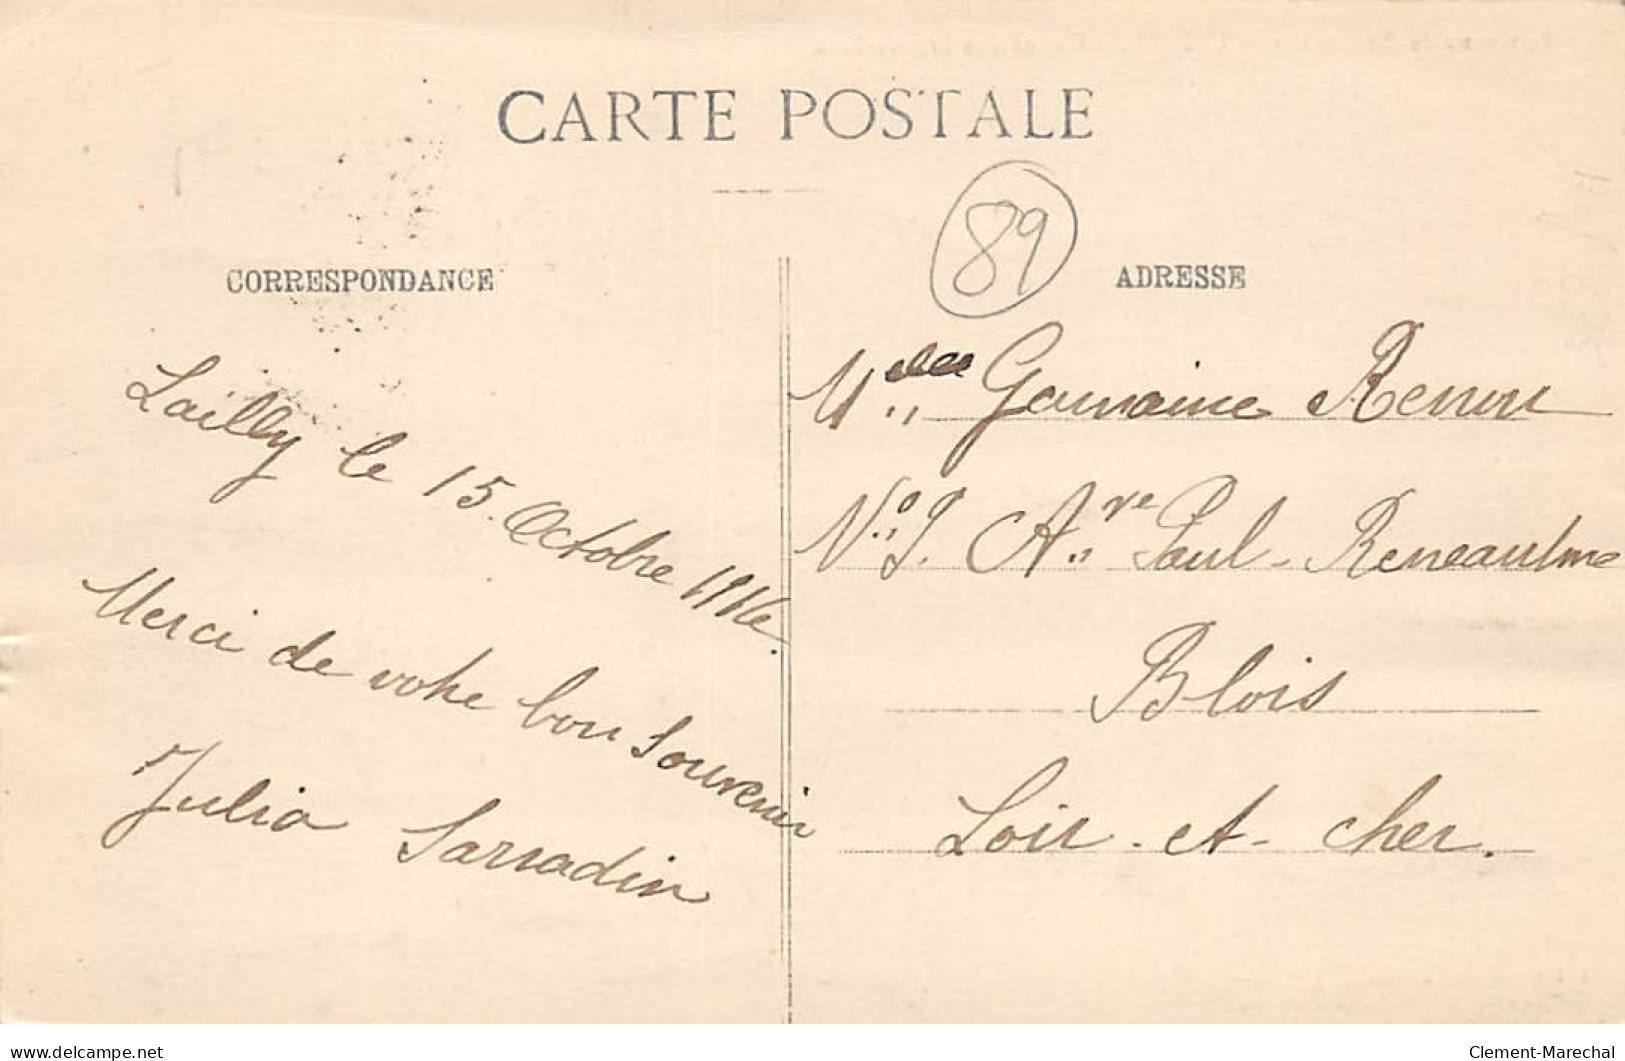 CARTE POSTALE
89
CORRESPONDANCE
Lailly le 15 Octobre
Merci de votre bon Souvenir
Julia Sarradin
ADRESSE
Melle Germaine Renou
No 9. Ave Paul-Reneaulme
Blois
Loir-et-Cher.
Clement-Marechal